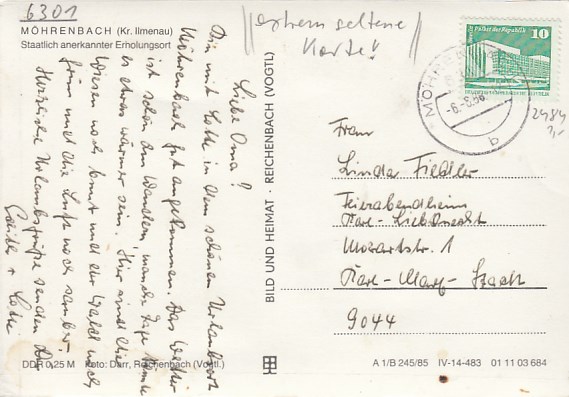 6301
MÖHRENBACH (Kr. Ilmenau)
Staatlich anerkannter Erholungsort
extrem seltene
Karte!
Liebe Oma!
Bin mit Lotte in dem schönen Urlaubsort
Möhrenbach gut angekommen. Das Wetter
ist schön zum Wandern, manche Tage könnte
es etwas wärmer sein. Hier sind die
Wiesen noch bunt und der Wald noch
grün und die Luft noch sauber.
Herzliche Urlaubsgrüße senden Dir
+ Lotte
DDR 0,25 M Foto: Darr, Reichenbach (Vogtl.)
BILD UND HEIMAT · REICHENBACH (VOGTL)
Palast der Republik
10
MÖHRENBACH
-6.-8.86
b
2484
Frau
Linda Fiedler
Feierabendheim
Karl-Liebknecht
Mozartstr. 1
Karl-Marx-Stadt
9044
A 1/B 245/85 IV-14-483 01 11 03 684